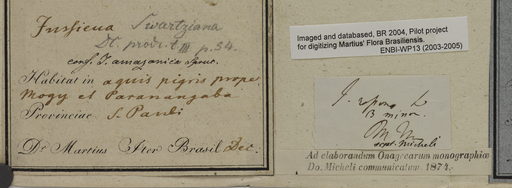 Jussieua Swartziana
DC. prodr. t. III p. 54.
conf. J. amazonica Spruc.
Habitat in aquis pigris prope
Mogy et Paranangaba
Provinciae S. Pauli
Dr Martius Iter Brasil Dec.
Imaged and databased, BR 2004, Pilot project
for digitizing Martius' Flora Brasiliensis.
ENBI-WP13 (2003-2005)
J. repens L
β minor
M. M
scrpt. Micheli
Ad elaborandum Onagracearum monographiam
Do. Micheli communicatum 1874.